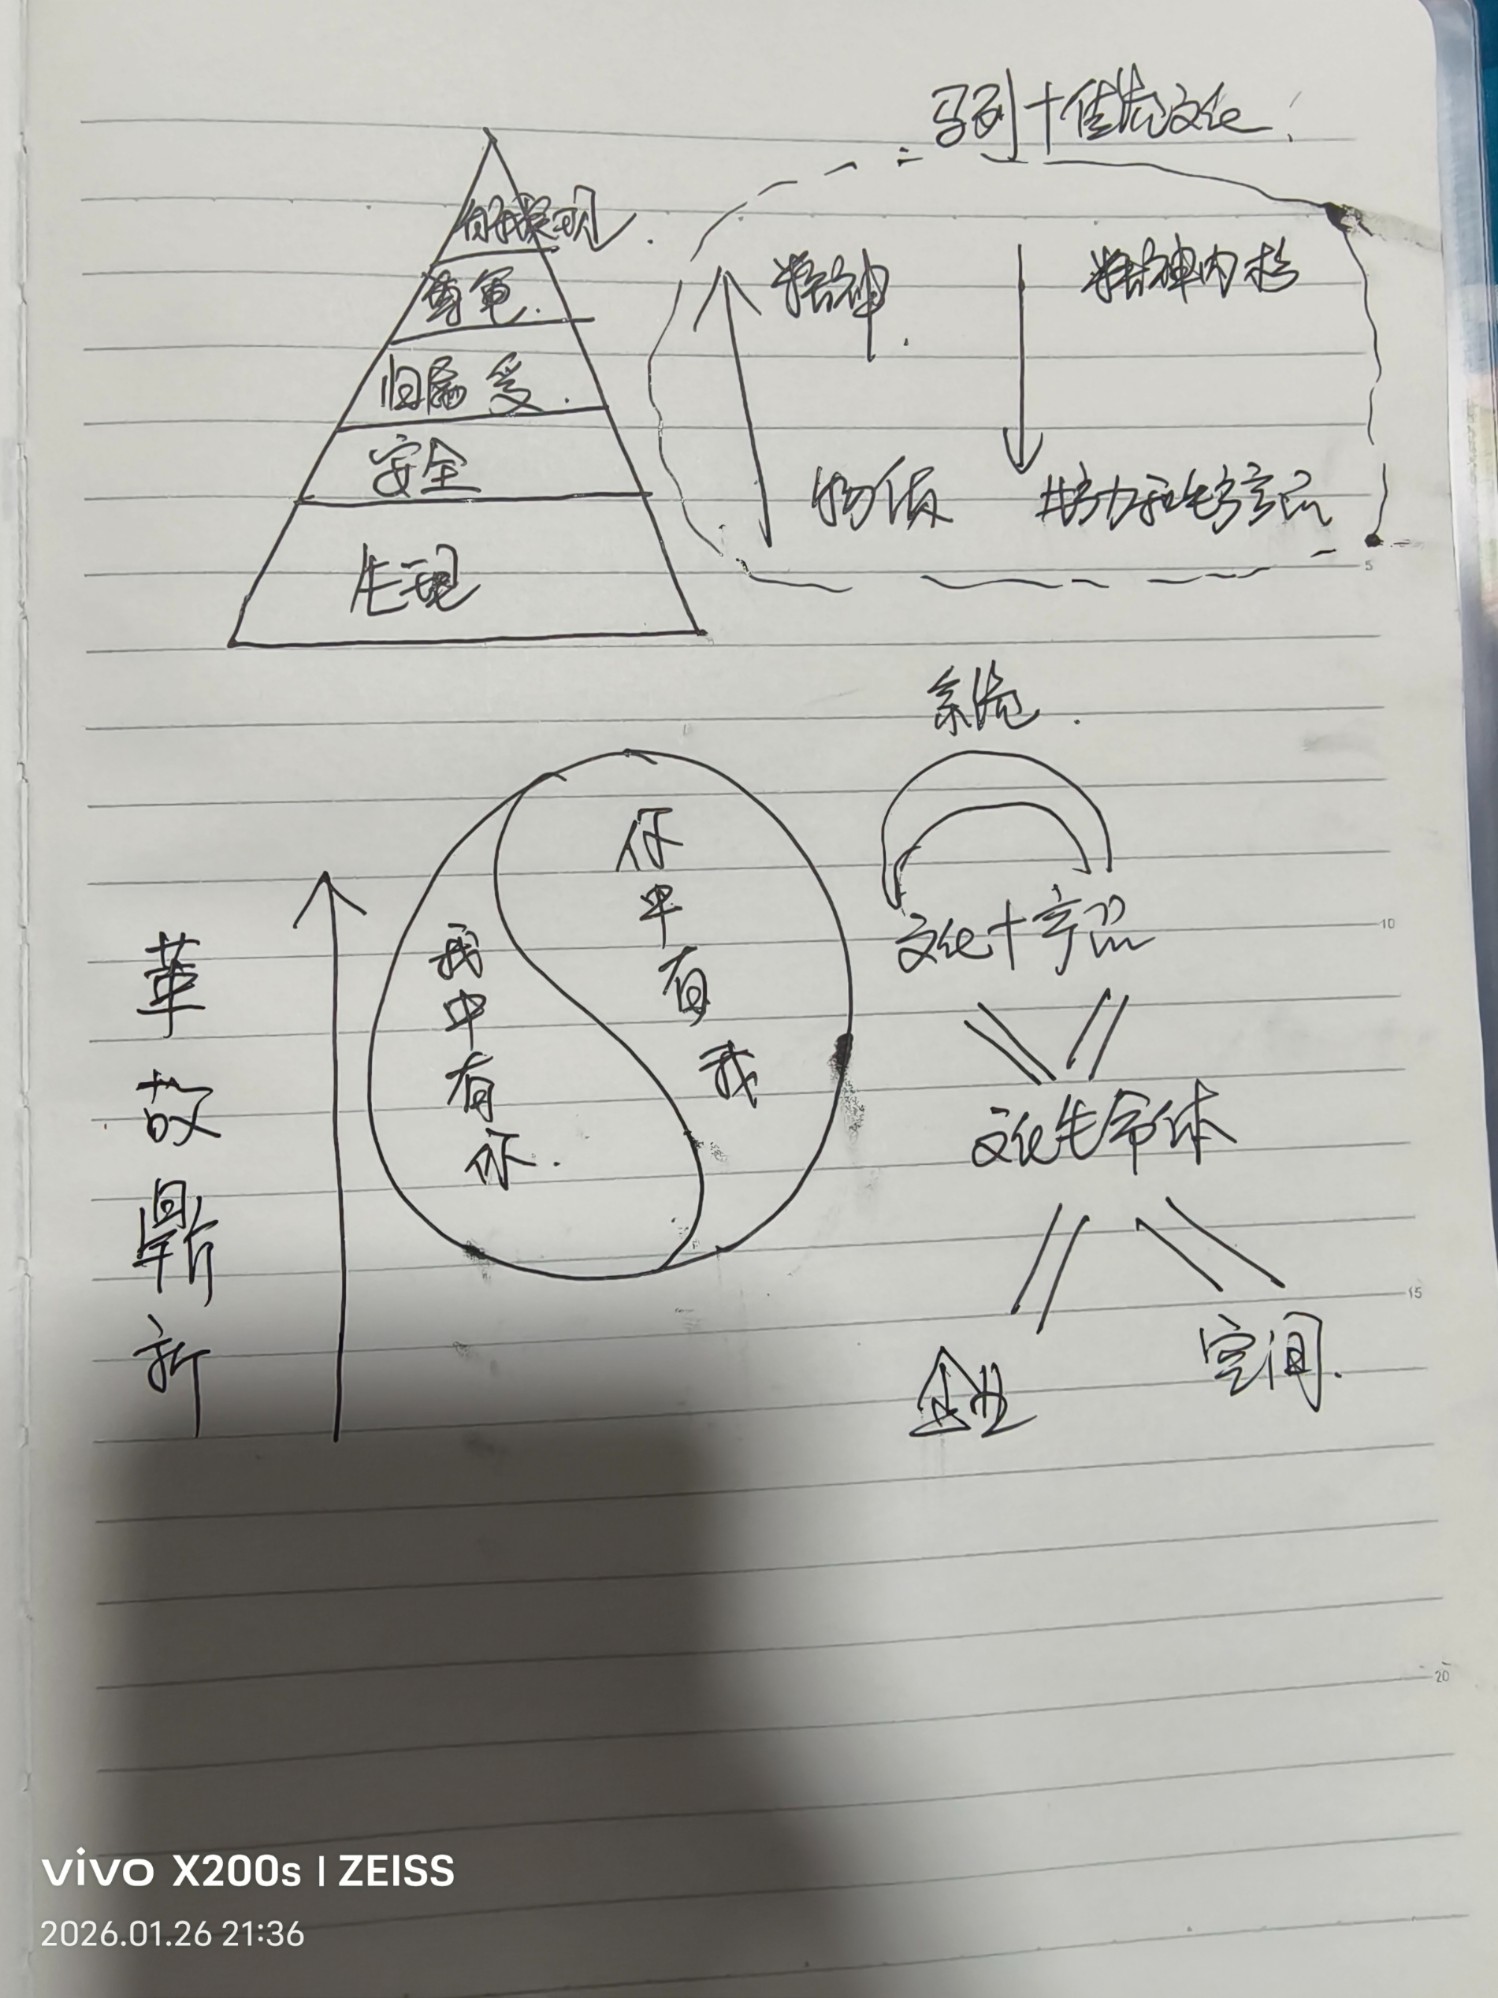 马列十传统文化
自我实现.
尊重.
归属 爱.
安全
生理
精神.
精神内核
物质
生产品
系统.
文化十产品
文化生命体
企业
空间.
你中有我
我中有你.
革故鼎新
5
10
15
20
vivo X200s | ZEISS
2026.01.26 21:36